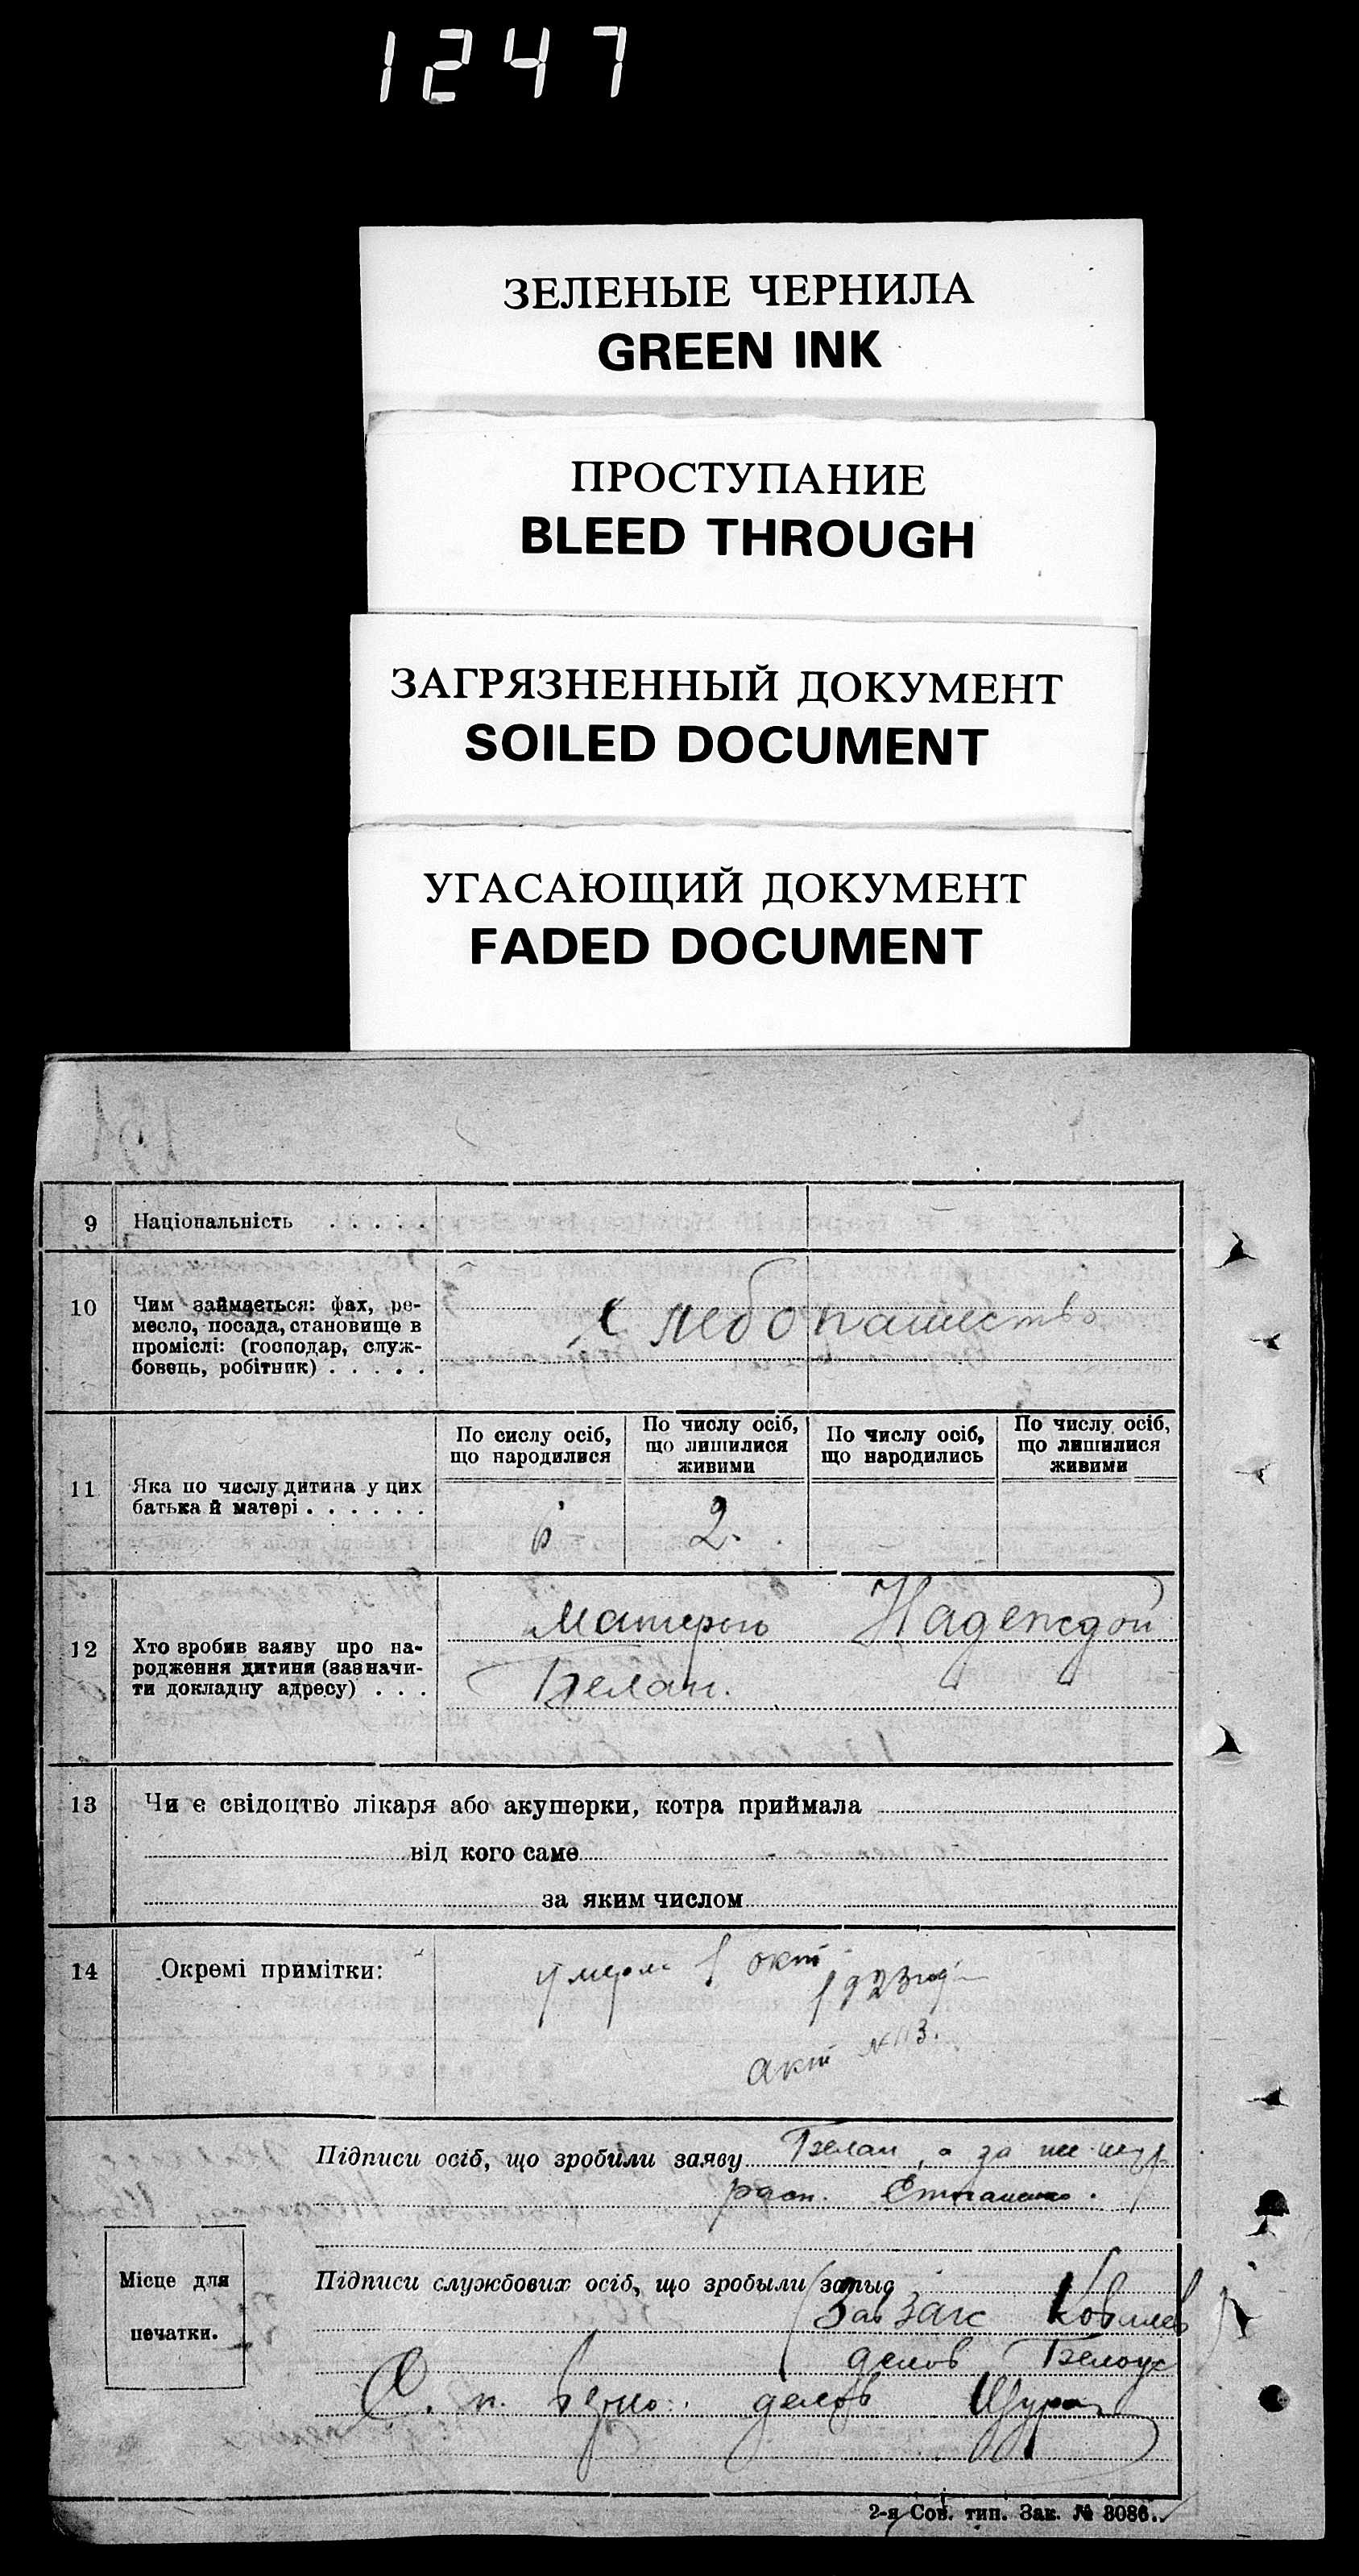 1247
ЗЕЛЕНЫЕ ЧЕРНИЛА
GREEN INK
ПРОСТУПАНИЕ
BLEED THROUGH
ЗАГРЯЗНЕННЫЙ ДОКУМЕНТ
SOILED DOCUMENT
УГАСАЮЩИЙ ДОКУМЕНТ
FADED DOCUMENT
9 Національність . . . . .
10 Чим займається: фах, ре-
месло, посада, становище в
проміслі: (господар, служ-
бовець, робітник) . . . . .
хлебопашество
11 Яка по числу дитина у цих
батька й матері . . . . . .
По сислу осіб,
що народилися
По числу осіб,
що лишилися
живими
По числу осіб,
що народились
По числу осіб,
що лишилися
живими
6 2.
12 Хто зробив заяву про на-
родження дитини (зазначи-
ти докладну адресу) . . .
Матерью Надеждой
Белан.
13 Чи є свідоцтво лікаря або акушерки, котра приймала
від кого саме
за яким числом
14 Окремі примітки:
умерла 1 окт
1923 год
акт № 113.
Підписи осіб, що зробили заяву Белан, а за
расп. Степаненко.
Підписи службових осіб, що зробыли запыс
Зав Загс
делов Белоус
С. п. верно: делов
Місце для
печатки.
2-я Сов. тип. Зак. № 3086.